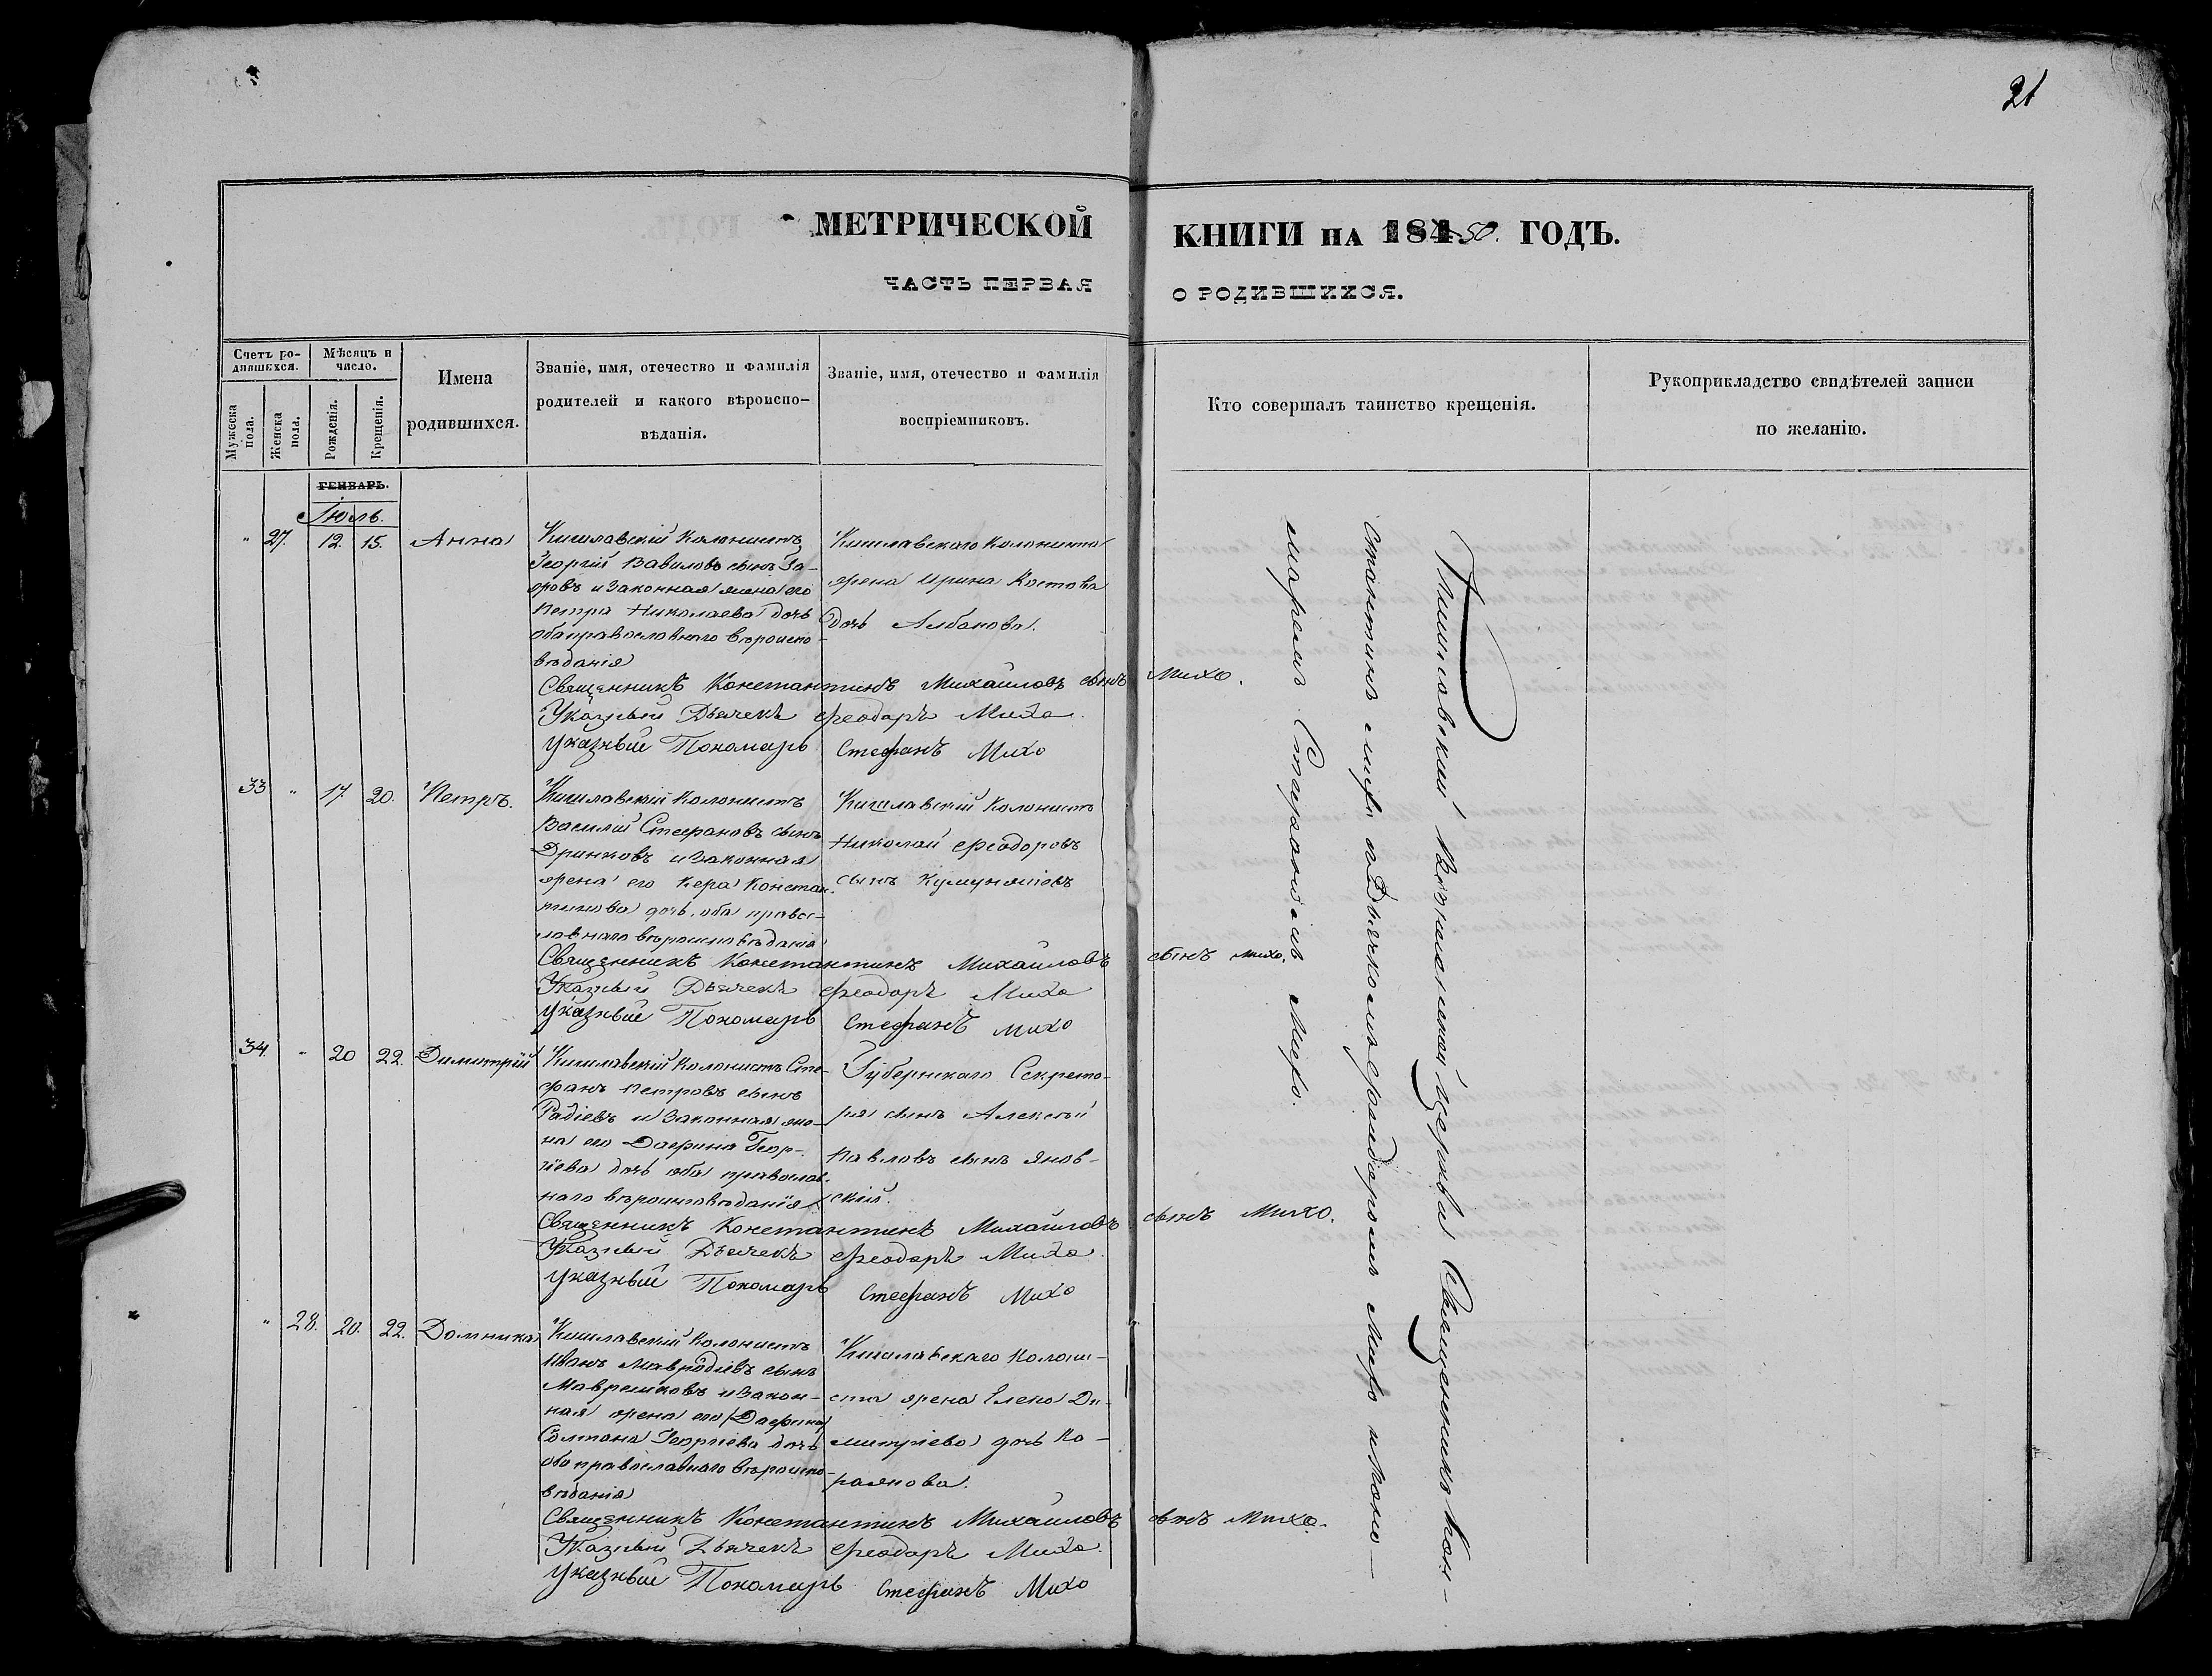 21
МЕТРИЧЕСКОЙ КНИГИ НА 18450. ГОДЪ.
ЧАСТЬ ПЕРВАЯ О РОДИВШИХСЯ.
Счетъ ро-
дившихся.
Мужеска пола.
Женска пола.
Мѣсяцъ и
число.
Рожденія.
Крещенія.
Имена
родившихся.
Званіе, имя, отечество и фамилія
родителей и какого вѣроиспо-
вѣданія.
Званіе, имя, отечество и фамилія
воспріемниковъ.
Кто совершалъ таинство крещенія.
Рукоприкладство свидѣтелей записи
по желанію.
ГЕНВАРЬ.
Іюль.
" 27. 12. 15. Анна
Кишлавскій Колонистъ
Георгій Вавиловъ сынъ За-
и Законная жена его
Петра Николаева дочь
оба православнаго вѣроиспо-
вѣданія
Кишлавскаго Колониста
жена Ирина Костова
дочь Албакова.
Священникъ Константинъ Михайловъ сынъ Михо.
Указный Дьячекъ Феодоръ Михо.
Указный Пономарь Стефанъ Михо
33 " 17. 20. Петръ.
Кишлавскій Колонистъ
Василій Стефановъ сынъ
Дринковъ и Законная
жена его Кера Констан-
тинова дочь, оба правос-
лавнаго вѣроисповѣданія
Кишлавскій Колонистъ
Николай Феодоровъ
сынъ
Священникъ Константинъ Михайловъ сынъ Михо.
Указный Дьячекъ Феодоръ Михо
Указный Пономарь Стефанъ Михо
34. " 20 22. Димитрій
Кишлавскій Колонистъ Сте-
фанъ Петровъ сынъ
Радіевъ и Законная же-
на его Дафина Геор-
гіева дочь оба православ-
наго вѣроисповѣданія
Губернскаго Секрета-
ря сынъ Алексѣй
Павловъ сынъ Янов-
скій.
Священникъ Константинъ Михайловъ сынъ Михо.
Указный Дьячекъ Феодоръ Михо.
Указный Пономарь Стефанъ Михо
" 28. 20. 22. Домника
Кишлавскій Колонистъ
Иванъ Мавродіевъ сынъ
и Закон-
ная жена его (Дафина)
Солтана Георгіева дочь
оба православнаго вѣроиспо-
вѣданія
Кишлавскаго Колони-
ста жена Елена Ди-
митріева дочь Ка-
раянова.
Священникъ Константинъ Михайловъ сынъ Михо.
Указный Дьячекъ Феодоръ Михо.
Указный Пономарь Стефанъ Михо
Кишлавской церкви Священникъ Кон-
стантинъ Михо съ Дьячкомъ Феодоромъ Михо и Поно-
маремъ Стефаномъ Михо.